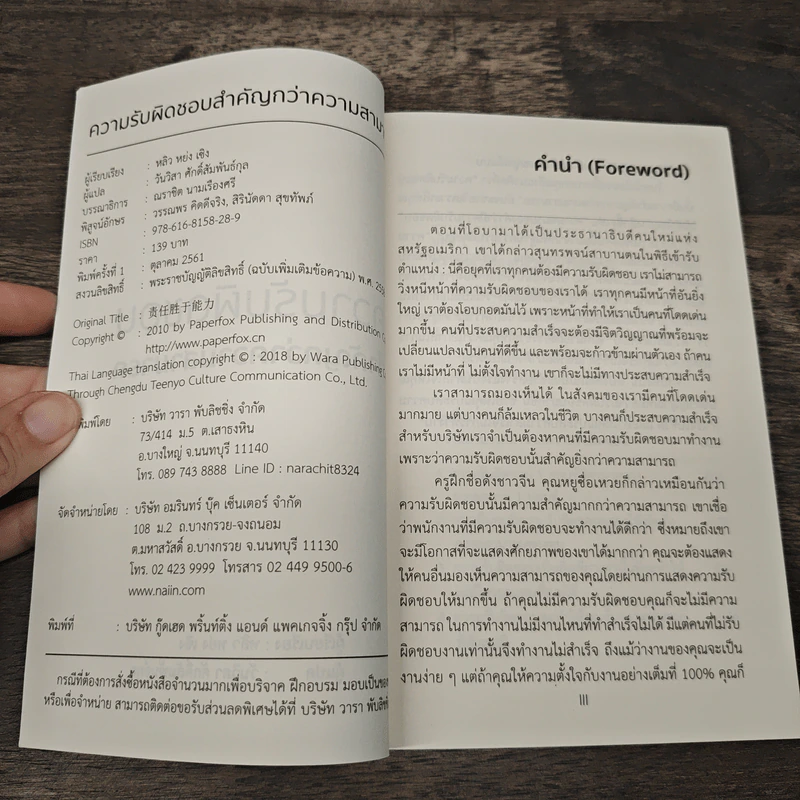 ความรับผิดชอบสำคัญกว่าความสามา
ผู้เรียบเรียง : หลิว หย่ง เซิง
ผู้แปล : วันวิสา ศักดิ์สัมพันธ์กุล
บรรณาธิการ : ณราชิต นามเรืองศรี
พิสูจน์อักษร : วรรณพร คิดดีจริง, สิรินัดดา สุขทัพภ์
ISBN : 978-616-8158-28-9
ราคา : 139 บาท
พิมพ์ครั้งที่ 1 : ตุลาคม 2561
สงวนลิขสิทธิ์ : พระราชบัญญัติลิขสิทธิ์ (ฉบับเพิ่มเติมข้อความ) พ.ศ.
Original Title : 责任胜于能力
Copyright © : 2010 by Paperfox Publishing and Distribution
http://www.paperfox.cn
Thai Language translation copyright © : 2018 by Wara Publishing
Through Chengdu Teenyo Culture Communication Co., Ltd.
พิมพ์โดย : บริษัท วารา พับลิชชิ่ง จำกัด
73/414 ม.5 ต.เสาธงหิน
อ.บางใหญ่ จ.นนทบุรี 11140
โทร. 089 743 8888 Line ID : narachit8324
จัดจำหน่ายโดย : บริษัท อมรินทร์ บุ๊ค เซ็นเตอร์ จำกัด
108 ม.2 ถ.บางกรวย-จงถนอม
ต.มหาสวัสดิ์ อ.บางกรวย จ.นนทบุรี 11130
โทร. 02 423 9999 โทรสาร 02 449 9500-6
www.naiin.com
พิมพ์ที่ : บริษัท กู๊ดเฮด พริ้นท์ติ้ง แอนด์ แพคเกจจิ้ง กรุ๊ป จำกัด
กรณีที่ต้องการสั่งซื้อหนังสือจำนวนมากเพื่อบริจาค ฝึกอบรม มอบเป็นของ
หรือเพื่อจำหน่าย สามารถติดต่อขอรับส่วนลดพิเศษได้ที่ บริษัท วารา พับลิชชิ่
คำนำ (Foreword)
ตอนที่โอบามาได้เป็นประธานาธิบดีคนใหม่แห่ง
สหรัฐอเมริกา เขาได้กล่าวสุนทรพจน์สาบานตนในพิธีเข้ารับ
ตำแหน่ง : นี่คือยุคที่เราทุกคนต้องมีความรับผิดชอบ เราไม่สามารถ
วิ่งหนีหน้าที่ความรับผิดชอบของเราได้ เราทุกคนมีหน้าที่อันยิ่ง
ใหญ่ เราต้องโอบกอดมันไว้ เพราะหน้าที่ทำให้เราเป็นคนที่โดดเด่น
มากขึ้น คนที่ประสบความสำเร็จจะต้องมีจิตวิญญาณที่พร้อมจะ
เปลี่ยนแปลงเป็นคนที่ดีขึ้น และพร้อมจะก้าวข้ามผ่านตัวเอง ถ้าคน
เราไม่มีหน้าที่ ไม่ตั้งใจทำงาน เขาก็จะไม่มีทางประสบความสำเร็จ
เราสามารถมองเห็นได้ ในสังคมของเรามีคนที่โดดเด่น
มากมาย แต่บางคนก็ล้มเหลวในชีวิต บางคนก็ประสบความสำเร็จ
สำหรับบริษัทเราจำเป็นต้องหาคนที่มีความรับผิดชอบมาทำงาน
เพราะว่าความรับผิดชอบนั้นสำคัญยิ่งกว่าความสามารถ
ครูฝึกชื่อดังชาวจีน คุณหยูซื่อเหวยก็กล่าวเหมือนกันว่า
ความรับผิดชอบนั้นมีความสำคัญมากกว่าความสามารถ เขาเชื่อ
ว่าพนักงานที่มีความรับผิดชอบจะทำงานได้ดีกว่า ซึ่งหมายถึงเขา
จะมีโอกาสที่จะแสดงศักยภาพของเขาได้มากกว่า คุณจะต้องแสดง
ให้คนอื่นมองเห็นความสามารถของคุณโดยผ่านการแสดงความรับ
ผิดชอบให้มากขึ้น ถ้าคุณไม่มีความรับผิดชอบคุณก็จะไม่มีความ
สามารถ ในการทำงานไม่มีงานไหนที่ทำสำเร็จไม่ได้ มีแต่คนที่ไม่รับ
ผิดชอบงานเท่านั้นจึงทำงานไม่สำเร็จ ถึงแม้ว่างานของคุณจะเป็น
งานง่าย ๆ แต่ถ้าคุณให้ความตั้งใจกับงานอย่างเต็มที่ 100% คุณก็
III